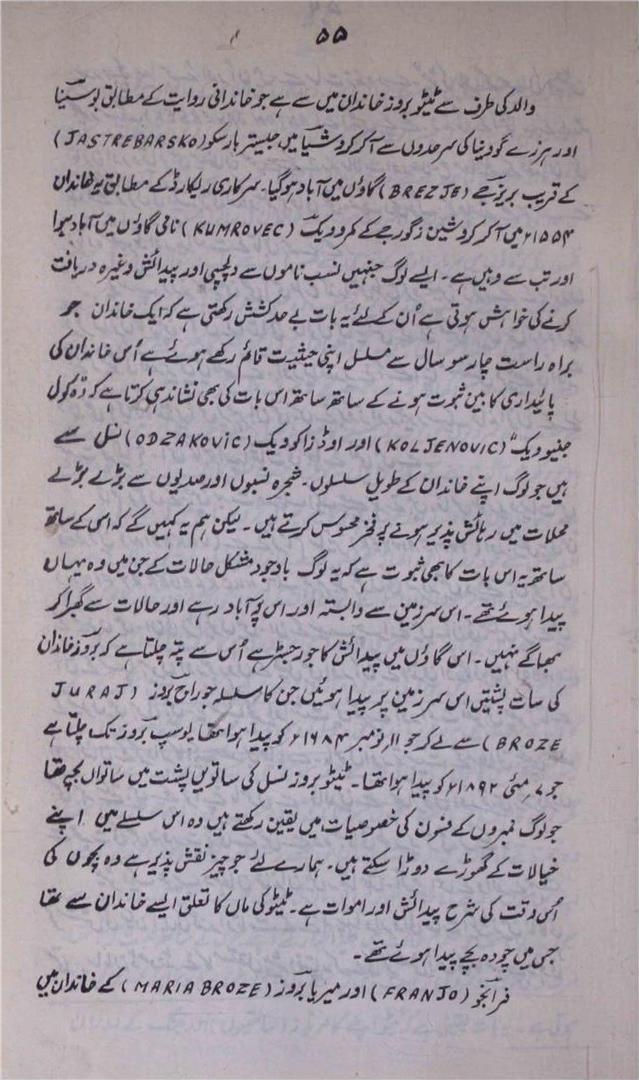 ۵۵
والد کی طرف سے ٹیٹو بروز خاندان میں سے ہے جو خاندانی روایت کے مطابق بوسینا
اور ہرزے گودینا کی سرحدوں سے آکر کروشیا میں جیسٹر بارسکو (JASTREBARSKO)
کے قریب بریزجے (BREZJE) گاؤں میں آباد ہوگیا۔ سرکاری ریکارڈ کے مطابق یہ خاندان
۱۵۵۴ء میں آکر کروشین زگورجے کے کمروویک (KUMROVEC) نامی گاؤں میں آباد ہوا
اور تب سے وہیں ہے۔ ایسے لوگ جنہیں نسب ناموں سے دلچسپی اور پیدائش وغیرہ دریافت
کرنے کی خواہش ہوتی ہے اُن کے لئے یہ بات بے حد کشش رکھتی ہے کہ ایک خاندان جو
براہ راست چار سو سال سے مسلسل اپنی حیثیت قائم رکھے ہوئے ہے اُس خاندان کی
پائیداری کا بین ثبوت ہونے کے ساتھ ساتھ اس بات کی بھی نشاندہی کرتا ہے کہ وہ کول
جنیوویک" (KOLJENOVIC) اور اوڈزاکوویک (ODZAKOVIC) نسل سے
ہیں جو لوگ اپنے خاندان کے طویل سلسلوں۔ شجرہ نسبوں اور صدیوں سے بڑے بڑے
محلات میں رہائش پذیر ہونے پر فخر محسوس کرتے ہیں۔ لیکن ہم یہ کہیں گے کہ اسی کے ساتھ
ساتھ یہ اس بات کا بھی ثبوت ہے کہ یہ لوگ باوجود مشکل حالات کے جن میں وہ یہاں
پیدا ہوئے تھے۔ اس سرزمین سے وابستہ اور اس پہ آباد رہے اور حالات سے گھبرا کر
بھاگے نہیں۔ اس گاؤں میں پیدائش کا جو رجسٹر ہے اُس سے پتہ چلتا ہے کہ بروز خاندان
کی سات پشتیں اس سرزمین پر پیدا ہوئیں جن کا سلسلہ جوراج بروز (JURAJ
BROZE) سے لے کر جو ۱۱ نومبر ۱۶۸۴ء کو پیدا ہوا تھا یوسپ بروز تک چلتا ہے
جو ۷ مئی ۱۸۹۲ء کو پیدا ہوا تھا۔ ٹیٹو بروز نسل کی ساتویں پشت میں ساتواں بچہ تھا
جو لوگ نمبروں کے فسون کی خصوصیات میں یقین رکھتے ہیں وہ اس سلسلے میں اپنے
خیالات کے گھوڑے دوڑا سکتے ہیں۔ ہمارے لئے جو چیز نقش پذیر ہے وہ بچوں کی
اُس وقت کی شرح پیدائش اور اموات ہے۔ ٹیٹو کی ماں کا تعلق ایسے خاندان سے تھا
جس میں چودہ بچے پیدا ہوئے تھے۔
فرانجو (FRANJO) اور میریا بروز (MARIA BROZE) کے خاندان میں